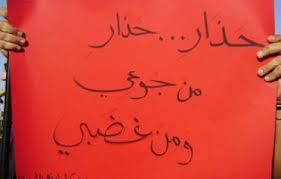 حذار...حذار
من جوعي
ومن غضبي